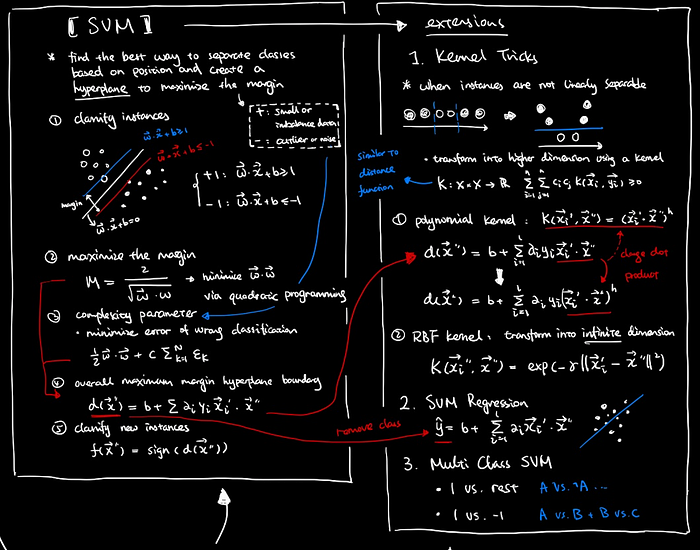 [ SVM ]
* find the best way to separate classes
based on position and create a
hyperplane to maximize the margin
+ : small or
imbalance data
- : outlier or noise
① classify instances
w⃗·x⃗+b≥1
w⃗·x⃗+b≤-1
margin
w⃗·x⃗+b=0
+1 : w⃗·x⃗+b≥1
-1 : w⃗·x⃗+b≤-1
② maximize the margin
M = 2/√(w⃗·w) → minimize w⃗·w⃗
via quadratic programming
③ complexity parameter
• minimize error of wrong classification
½ w⃗·w⃗ + C Σ_{k=1}^{N} ε_K
④ overall maximum margin hyperplane boundary
d(x⃗') = b + Σ ∂i yi x⃗i'·x⃗''
⑤ classify new instances
f(x⃗') = sign(d(x⃗''))
extensions
1. Kernel Tricks
* when instances are not linearly separable
• transform into higher dimension using a kernel
similar to
distance
function
K : X×X → R Σ_{i=1}^{n} Σ_{j=1}^{n} ci cj K(x⃗i, x⃗j) ≥0
① polynomial kernel : K(x⃗i', x⃗'') = (x⃗i'·x⃗'')^h
d(x⃗'') = b + Σ_{i=1}^{l} ∂i yi x⃗i'·x⃗''
change dot
product
d(x⃗') = b + Σ_{i=1}^{l} ∂i yi (x⃗i'·x⃗')^h
② RBF kernel : transform into infinite dimension
K(x⃗i'', x⃗'') = exp(-γ||x⃗i' - x⃗''||²)
2. SVM Regression
remove class
ŷ = b + Σ_{i=1}^{l} ∂i x⃗i'·x⃗''
3. Multi Class SVM
• 1 vs. rest A vs. ¬A ...
• 1 vs. -1 A vs. B + B vs. C